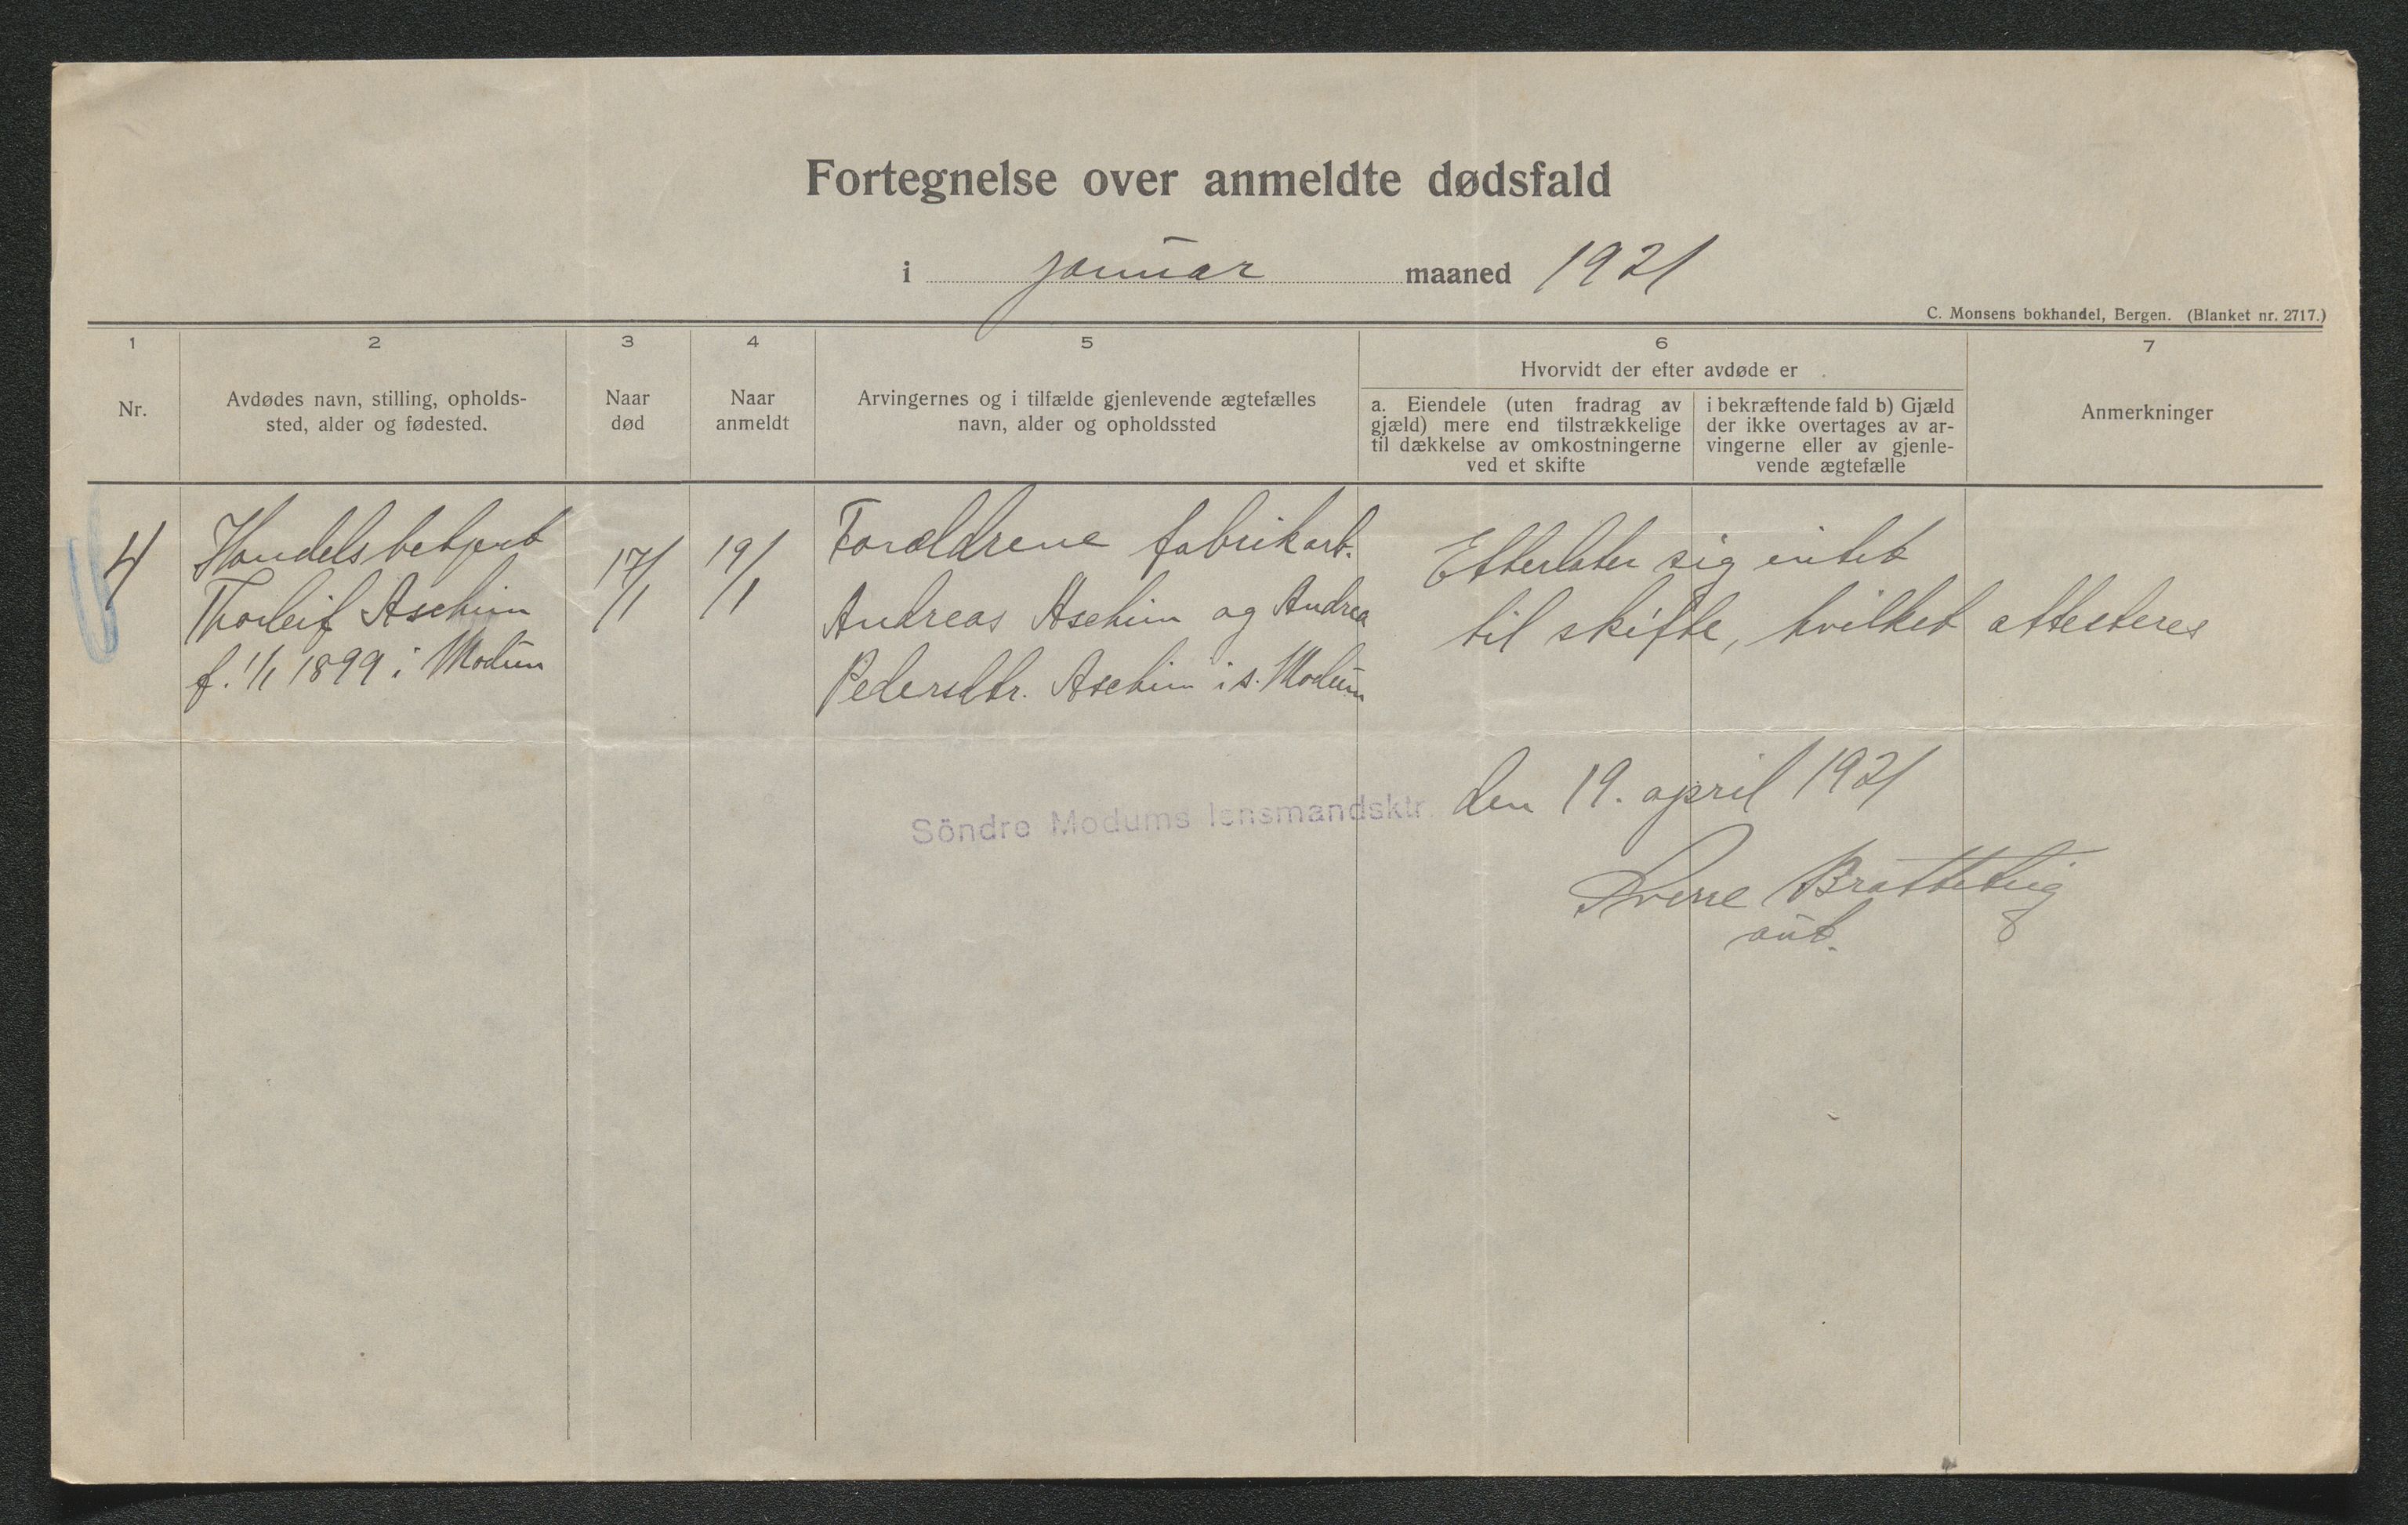 Fortegnelse over anmeldte dødsfald
i januar maaned 1921
C. Monsens bokhandel, Bergen. (Blanket nr. 2717.)
1
Nr.
2
Avdødes navn, stilling, opholds-
sted, alder og fødested.
3
Naar
død
4
Naar
anmeldt
5
Arvingernes og i tilfælde gjenlevende ægtefælles
navn, alder og opholdssted
6
Hvorvidt der efter avdøde er
a. Eiendele (uten fradrag av
gjæld) mere end tilstrækkelige
til dækkelse av omkostningerne
ved et skifte
i bekræftende fald b) Gjæld
der ikke overtages av ar-
vingerne eller av gjenle-
vende ægtefælle
7
Anmerkninger
4
Handelsbetjent
Thorleif Aschim
f. 1/1 1899 i Modum
17/1
19/1
Forældrene fabrikarb.
Andreas Aschim og Andrea
Pedersdtr. Aschim i s. Modum
Efterlater sig intet
til skifte, hvilket attesteres
Söndre Modums lensmandsktr. den 19. april 1921
Sverre Brattebig
aut.